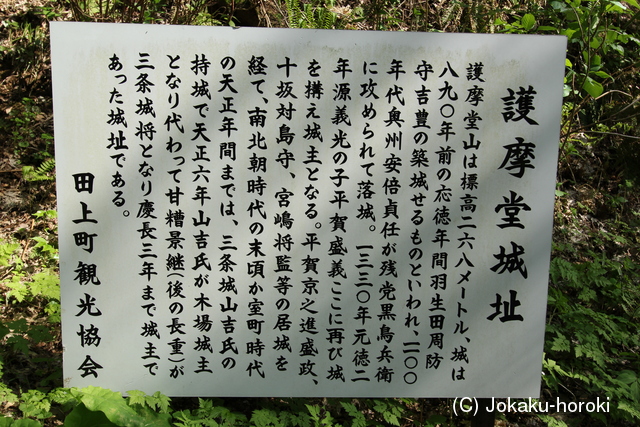 護摩堂城址
護摩堂山は標高二六八メートル、城は
八九〇年前の応徳年間羽生田周防
守吉豊の築城せるものといわれ、一一〇〇
年代奥州安倍貞任が残党黒鳥兵衛
に攻められて落城。一三三〇年元徳二
年源義光の子平賀盛義ここに再び城
を搆え城主となる。平賀京之進盛政、
十坂対島守、宮嶋将監等の居城を
経て、南北朝時代の末頃か室町時代
の天正年間までは、三条城山吉氏の
持城で天正六年山吉氏が木場城主
となり代わって甘糟景継(後の長重)が
三条城将となり慶長三年まで城主で
あった城址である。
田上町観光協会
(C) Jokaku-horoki